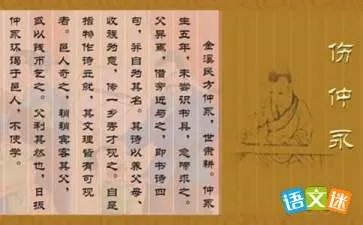 伤仲永
金溪民方仲永，世隶耕。仲永
生五年，未尝识书具，忽啼求之。
父异焉，借旁近与之，即书诗四
句，并自为其名。其诗以养父母、
收族为意，传一乡秀才观之。自是
指物作诗立就，其文理皆有可观
者。邑人奇之，稍稍宾客其父，
或以钱币乞之。父利其然也，日扳
仲永环谒于邑人，不使学。
语文迷